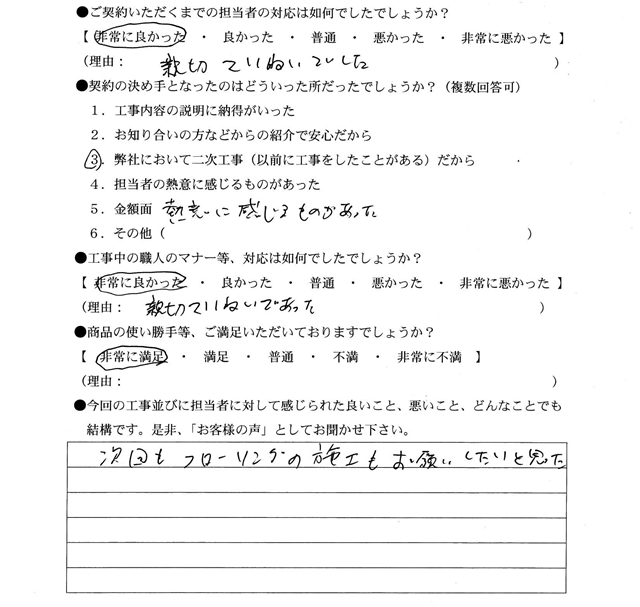 ●ご契約いただくまでの担当者の対応は如何でしたでしょうか？
【 非常に良かった ・ 良かった ・ 普通 ・ 悪かった ・ 非常に悪かった 】
（理由： 親切ていねいでした ）
●契約の決め手となったのはどういった所だったでしょうか？（複数回答可）
１．工事内容の説明に納得がいった
２．お知り合いの方などからの紹介で安心だから
３．弊社において二次工事（以前に工事をしたことがある）だから
４．担当者の熱意に感じるものがあった
５．金額面 熱意に感じるものがあった
６．その他（ ）
●工事中の職人のマナー等、対応は如何でしたでしょうか？
【 非常に良かった ・ 良かった ・ 普通 ・ 悪かった ・ 非常に悪かった 】
（理由： 親切ていねいであった ）
●商品の使い勝手等、ご満足いただいておりますでしょうか？
【 非常に満足 ・ 満足 ・ 普通 ・ 不満 ・ 非常に不満 】
（理由： ）
●今回の工事並びに担当者に対して感じられた良いこと、悪いこと、どんなことでも
結構です。是非、「お客様の声」としてお聞かせ下さい。
次回もフローリングの施工もお願いしたいと思った